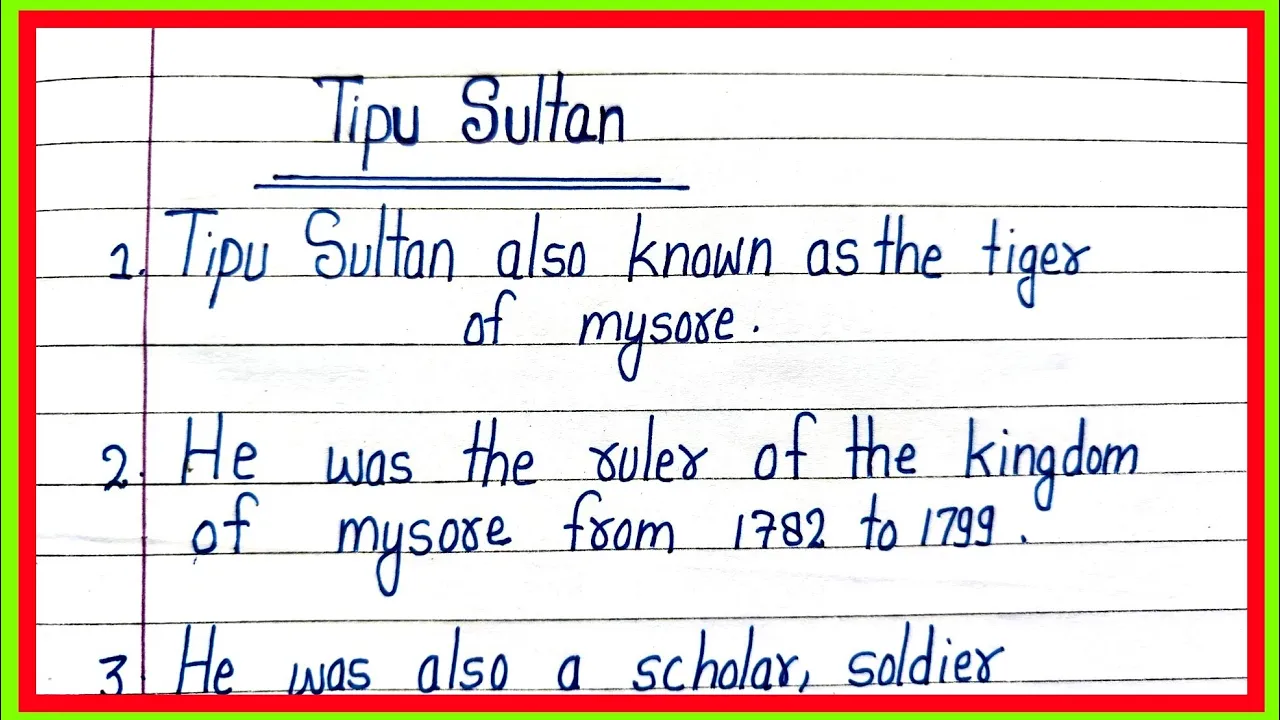 Tipu Sultan
1. Tipu Sultan also known as the tiger
of mysore.
2. He was the ruler of the kingdom
of mysore from 1782 to 1799.
3 He was also a scholar, soldier